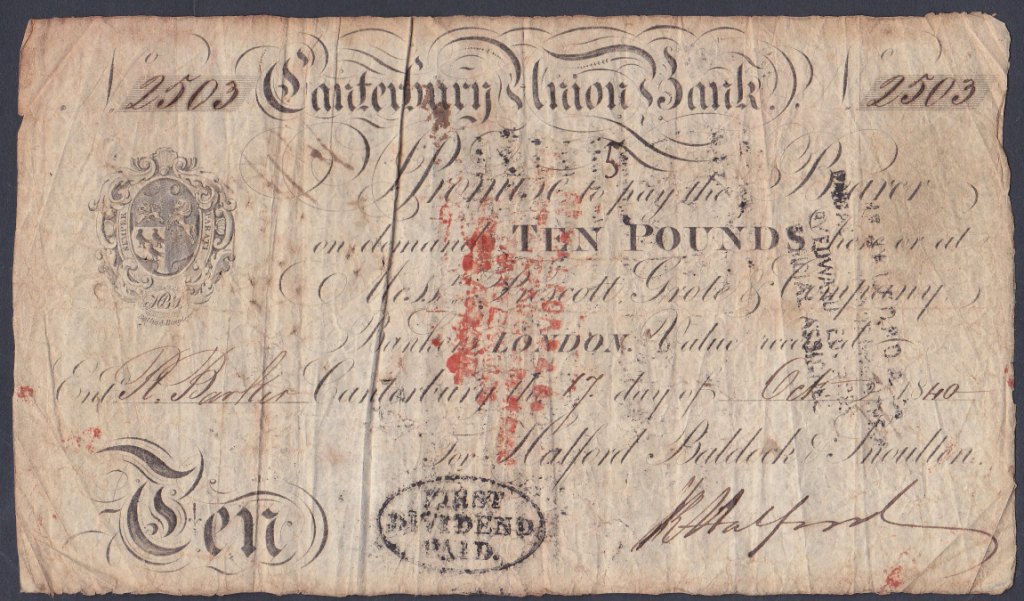 No 2503 Canterbury Union Bank. No 2503
5
I Promise to pay the Bearer
on demand TEN POUNDS here or at
Messrs Prescott, Grote & Company
Bankers LONDON. Value received
Entd R. Barker Canterbury the 17 day of Octr 1840
For Halford Baldock & Snoulten.
Ten
FIRST
DIVIDEND
PAID.
R Halford